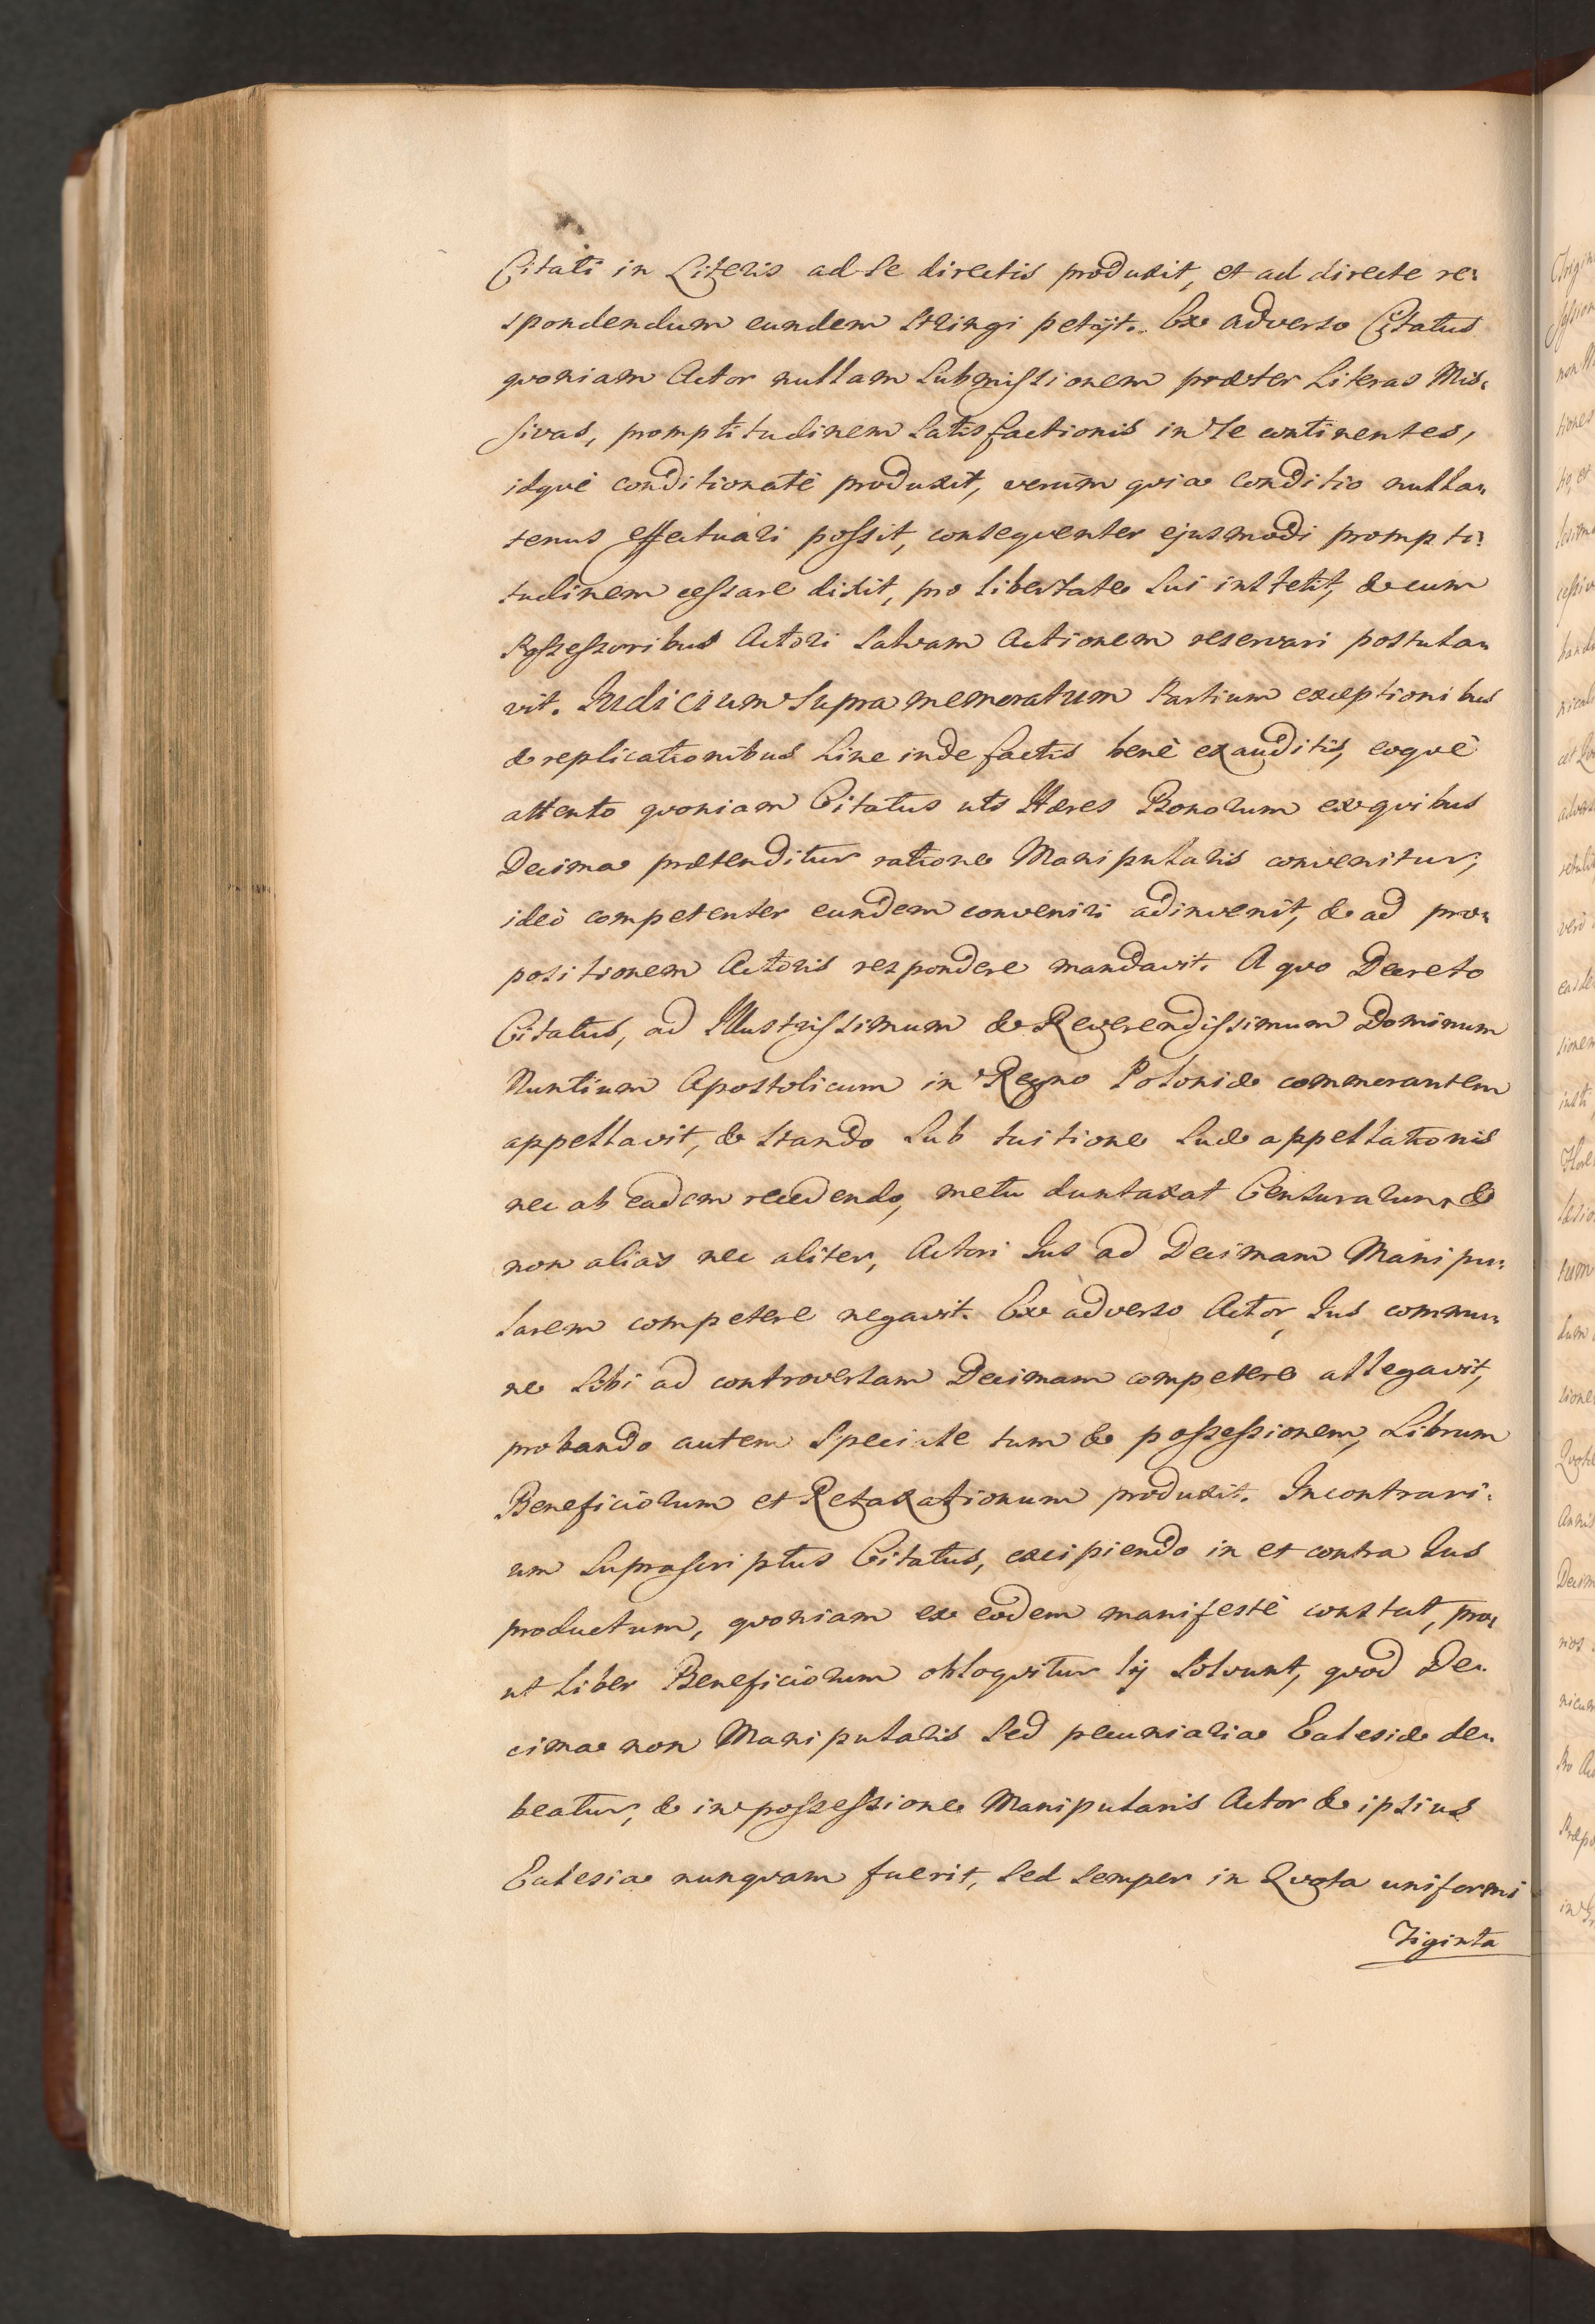 Citati in Literis ad se directis produxit, et ad directe re-
spondendum eundem stringi petijt. Ex adverso Citatus
qvoniam Actor nullam Submissionem præter Literas Mis-
sivas, promptitudinem Satisfactionis in se continentes,
idqvè conditionatè produxit, verùm qvia conditio nulla-
tenus effectuari possit, conseqventer ejusmodi prompti-
tudinem cessare dixit, pro libertate Sui institit, & cum
Possessoribus Actori Salvam Actionem reservari postula-
vit. Judicium Supra memoratum Partium exceptionibus
& replicationibus hinc inde factis benè exauditis, eoqvè
attento qvoniam Citatus uts Hæres Bonorum ex qvibus
Decima prætenditur ratione Manipularis convenitur,
ideò competenter eundem conveniri adinvenit, & ad pro-
positionem Actoris respondere mandavit. A qvo Decreto
Citatus, ad Illustrissimum & Reverendissimum Dominum
Nuntium Apostolicum in Regno Poloniæ commorantem
appellavit, & stando Sub tuitione Suæ appellationis
nec ab eadem recedendo, metu duntaxat Censurarum &
non aliàs nec aliter, Actori Jus ad Decimam Manipu-
larem competere negavit. Ex adverso Actor Jus commu-
ne Sibi ad controversam Decimam competere allegavit,
probando autem Speciale tum & possessionem, Librum
Beneficiorum et Retaxationum produxit. In contrari-
um Suprascriptus Citatus, excipiendo in et contra Jus
productum, qvoniam ex eodem manifestè constat, pro-
ut Liber Beneficiorum obloqvitur ij Solvunt, qvod De-
cima non Manipularis Sed pecuniaria Ecclesiæ de-
beatur, & in possessione Manipularis Actor & ipsius
Ecclesia nunqvam fuerit, Sed Semper in Qvota uniformi
Triginta